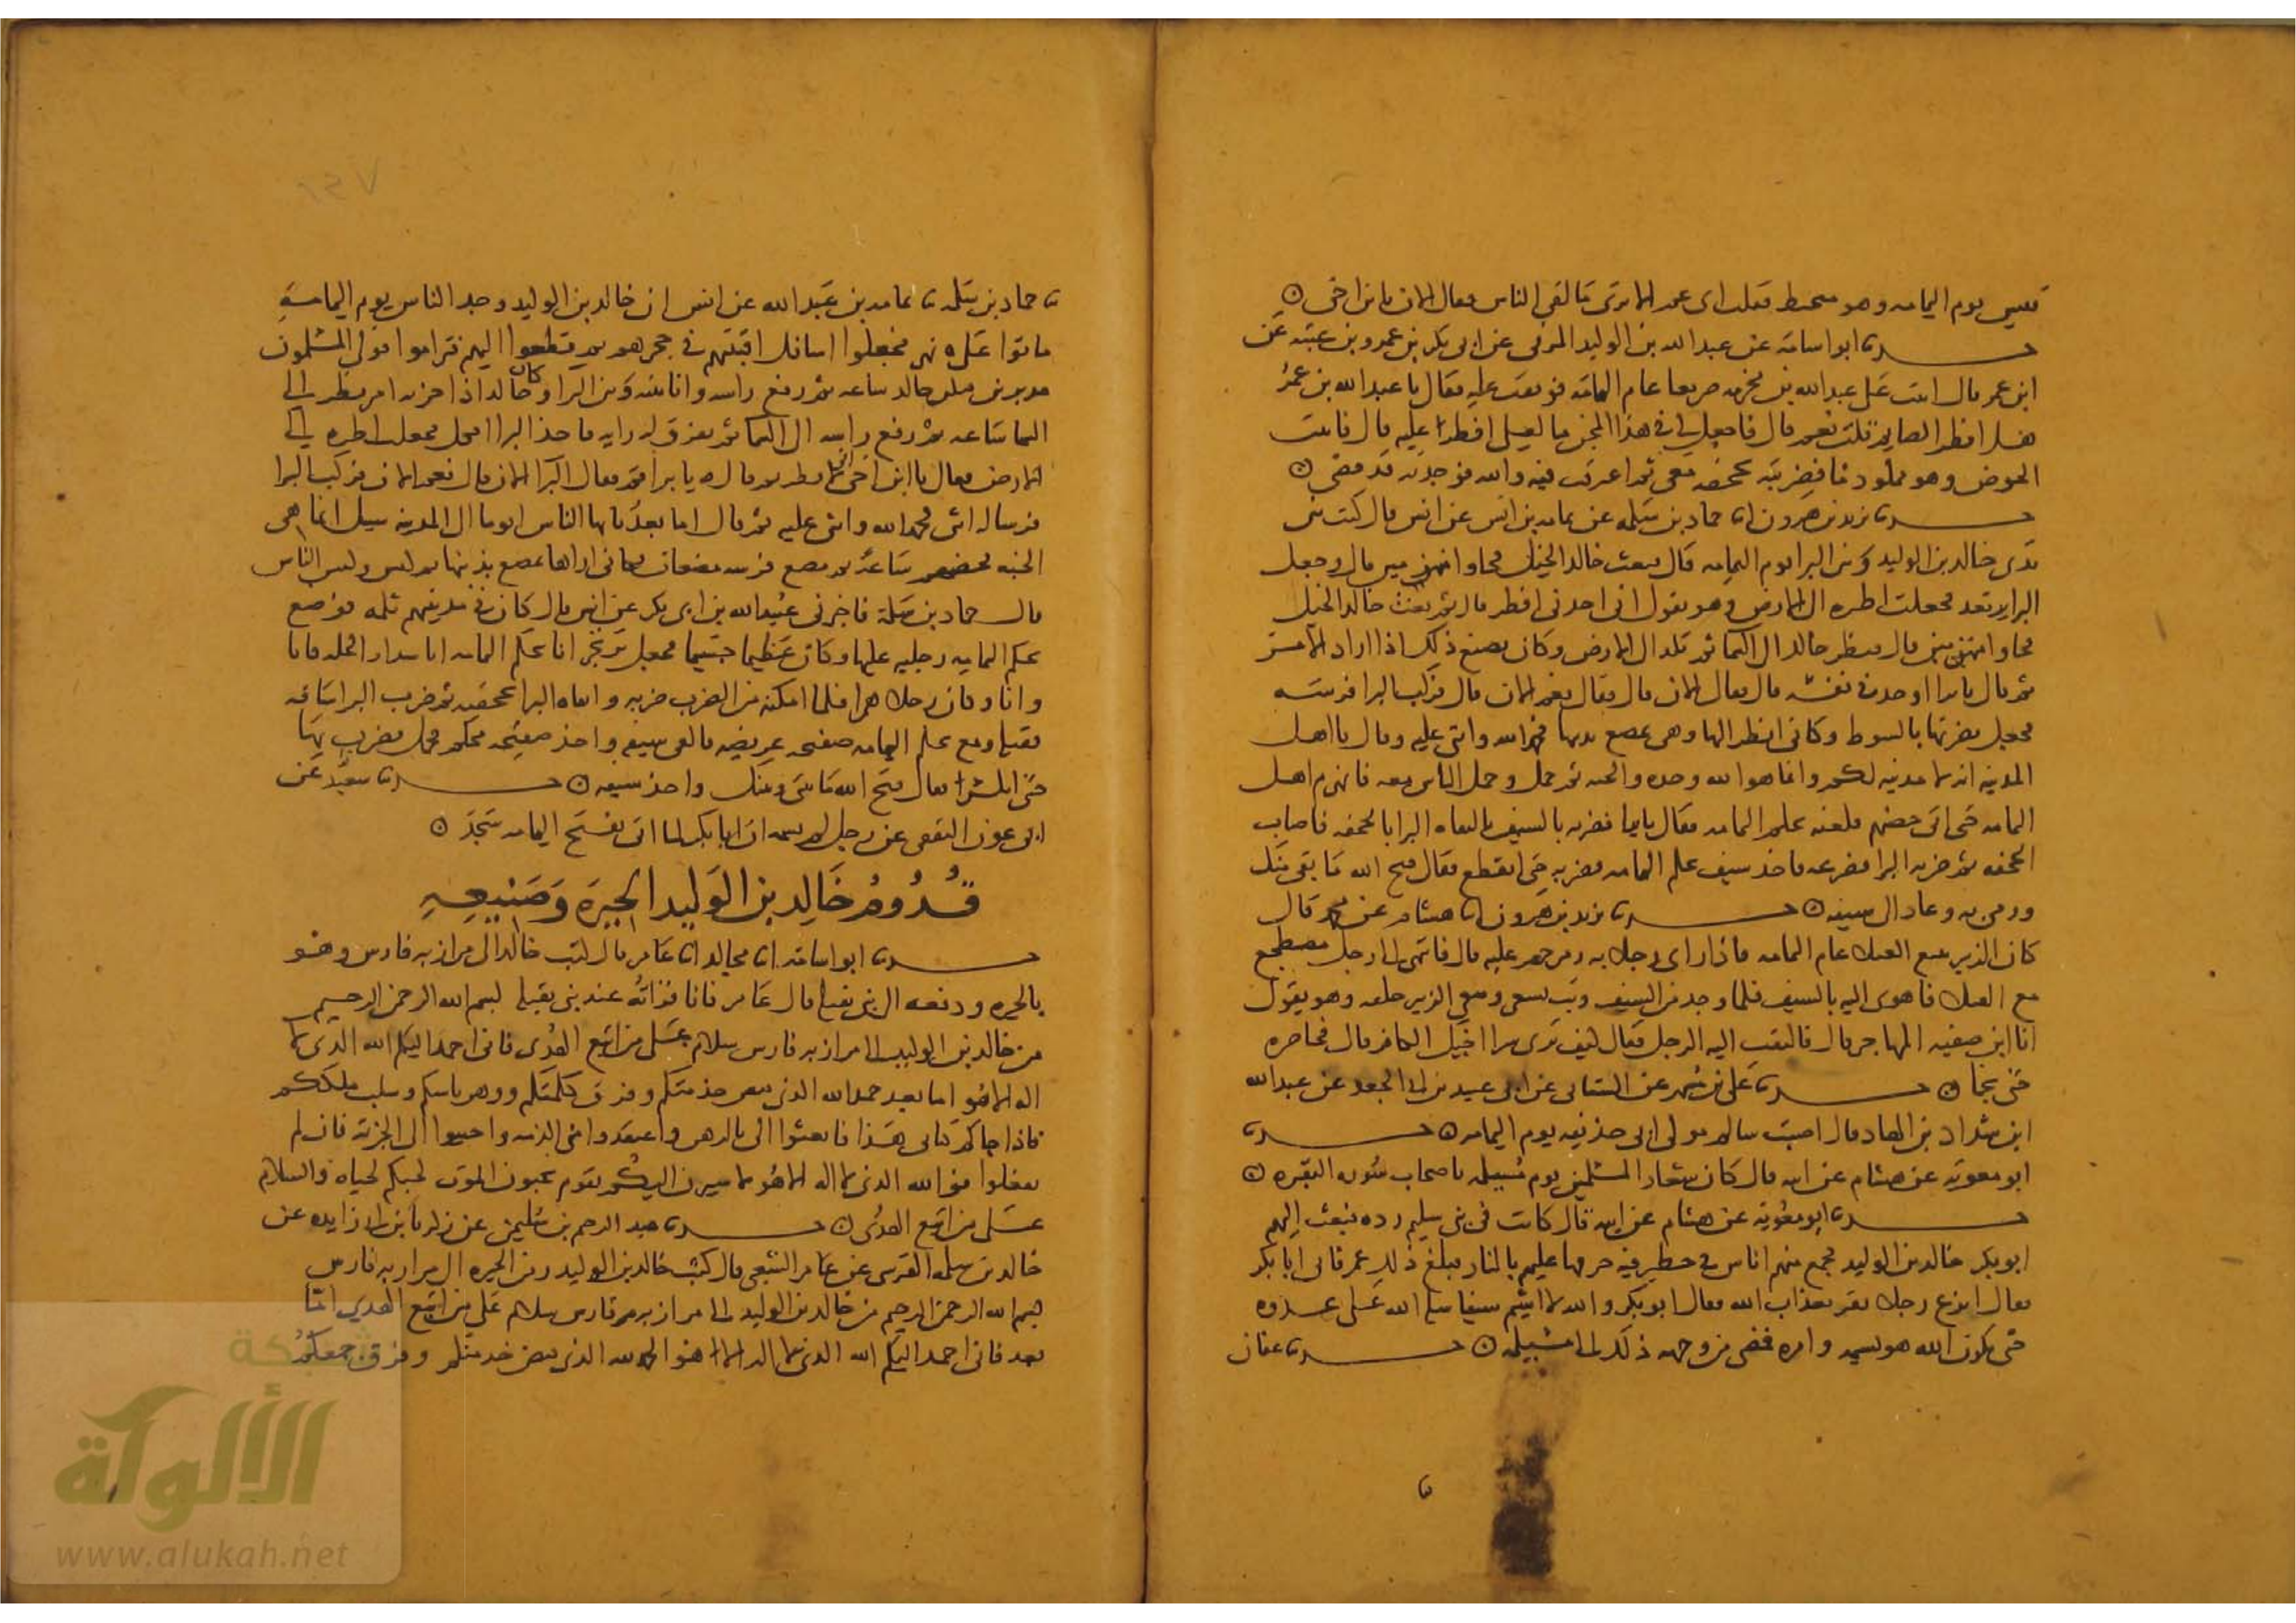 قيس يوم اليمامه وهو متحنط فقلت اى عم الا ترى ما لقى الناس فقال الان يا ابن اخى ۞
حدثنا ابو اسامة عن عبد الله بن الوليد المزنى عن ابى بكر بن عمرو بن عتبه عن
ابن عمر قال اتيت على عبد الله بن مخرمه صريعا عام اليمامه فوقفت عليه فقال يا عبد الله بن عمر
هل افطر الصايم قلت نعم قال فاجعل لى فى هذا المجن ما لعلى افطر عليه قال فاتيت
الحوض وهو مملود ما فضربته بحجفه معى ثم اغرفت فيه والله فوجدته قد قضى ۞
حدثنا يزيد بن هرون انا حماد بن سلمه عن ثمامه بن انس عن انس قال كنت بين
يدى خالد بن الوليد وبين البرا يوم اليمامه قال فبعث خالد الخيل فجاوا منهزمين قال وجعل
البرا يرتعد فجعلت اطره الى الارض وهو يقول انى اجدنى افطر قال ثم بعث خالد الخيل
فجاوا منهزمين قال فنظر خالد الى السما ثم بلد الى الارض وكان يصنع ذلك اذا اراد الامر
ثم قال يا برا اوحد فى نفسه قال فقال الان قال فقال نعم الان قال فركب البرا فرسه
فجعل يضربها بالسوط وكانى انظر اليها وهى تمصع بذنبها فحمد الله واثنى عليه وقال يا اهل
المدينه انه لا مدينه لكم وانما هو الله وحده والجنه ثم حمل وحمل الناس معه فانهزم اهل
اليمامه حتى اتى حصنهم فلقيه محكم اليمامه فقال يا برا فضربه بالسيف فاتقاه البرا بالحجفه فاصاب
الحجفه ثم ضربه البرا فصرعه فاخذ سيف محكم اليمامه فضربه حتى انقطع فقال قبح الله ما بقى منك
ورمى به وعاد الى سيفه ۞ حدثنا يزيد بن هرون انا هشام عن محمد قال
كان الزبير يتبع القتلى عام اليمامه فاذا راى رجل به رمق اجهز عليه قال فانتهى الى رجل مضطجع
مع القتلى فاهوى اليه بالسيف فلما وجد مس السيف وثب يسعى وسعى الزبير خلفه وهو يقول
انا ابن صفيه المهاجر قال فالتفت اليه الرجل فقال كيف ترى شد اخيك الكافر قال فحاصره
حتى نجا ۞ حدثنا على بن مسهر عن الشيبانى عن ابى عبيد بن ابى الجعد عن عبد الله
ابن شداد بن الهاد قال اصيب سالم مولى ابى حذيفه يوم اليمامه ۞ حدثنا
ابو معويه عن هشام عن ابيه قال كان شعار المسلمين يوم مسيلمه يا اصحاب سوره البقره ۞
حدثنا ابو معويه عن هشام عن ابيه قال كانت فى بنى سليم رده فبعث اليهم
ابو بكر خالد بن الوليد فجمع منهم اناس فى حظيره حرقها عليهم بالنار فبلغ ذلك عمر فاتى ابا بكر
فقال انزع رجلا يعذب بعذاب الله فقال ابو بكر والله لا اشيم سيفا سله الله على عدوه
حتى يكون الله هو يشيمه وامره فمضى من وجهه ذلك الى مسيلمه ۞ حدثنا عفان
نا حماد بن سلمه نا ثمامه بن عبد الله عن انس ان خالد بن الوليد وجه الناس يوم اليمامه
فاتوا على نهر فجعلوا اسافل اقبيتهم فى حجزهم ثم قطعوا اليهم فتراموا فولى المسلمون
مدبرين فنكس خالد ساعه ثم رفع راسه وانا بينه وبين البرا وكان خالد اذا حزبه امر نظر الى
السما ساعه ثم رفع راسه الى السما ثم يفرق له رايه فاخذ البرا افكل فجعلت اطره الى
الارض فقال يا ابن اخى انى لافطر ثم قال له يا برا قم فقال البرا الان قال نعم الان فركب البرا
فرسا له انثى فحمد الله واثنى عليه ثم قال اما بعد يا ايها الناس انه ما الى المدينه سبيل انما هى
الجنه فحضهم ساعة ثم مصع فرسه مصعات فكانى اراها تمصع بذنبها ثم كبس وكبس الناس
قال حماد بن سلمة فاخبرنى عبيد الله بن ابى بكر عن انس قال كان فى مدينتهم ثلمه فوضع
محكم اليمامه رجليه عليها وكان عظيما جسيما فجعل يرتجز انا محكم اليمامه انا سداد الخله فانا
وانا وكان رجلا هما فلما امكنه من الضرب ضربه واتقاه البرا بحجفته ثم ضرب البرا ساقه
فقتله ومع محكم اليمامه صفيحه عريضه فالقى سيفه واخذ صفيحه محكم فجعل يضرب بها
حتى انكسرت فقال قبح الله ما بقى منك واخذ سيفه ۞ حدثنا سعيد عن
ابى عون الثقفى عن رجل لم يسمه ان ابا بكر لما اتى بفتح اليمامه سجد ۞
قُدُومُ خَالِد بن الوَليد الحِيرَة وَصَنِيعِهِ
حدثنا ابو اسامه انا مجالد انا عامر قال كتب خالد الى مرازبه فارس وهو
بالحيره ودفعه الى بنى بقيله قال عامر فانا قراته عند بنى بقيله بسم الله الرحمن الرحيم
من خالد بن الوليد الى مرازبه فارس سلام على من اتبع الهدى فانى احمد اليكم الله الذى لا
اله الا هو اما بعد حمد الله الذى فض خدمتكم وفرق كلمتكم ووهن باسكم وسلب ملككم
فاذا جاكم كتابى هذا فابعثوا الى بالرهن واعتقدوا منى الذمه واجيبوا الى الجزيه فان لم
تفعلوا فوالله الذى لا اله الا هو لاسيرن اليكم بقوم يحبون الموت كحبكم الحياه والسلام
على من اتبع الهدى ۞ حدثنا عبد الرحيم بن سليمن عن زكريا بن ابى زايده عن
خالد بن سلمه القرشى عن عامر الشعبى قال كتب خالد بن الوليد زمن الحيره الى مرازبه فارس
بسم الله الرحمن الرحيم من خالد بن الوليد الى مرازبه فارس سلام على من اتبع الهدى اما
بعد فانى احمد اليكم الله الذى لا اله الا هو الحمد لله الذى فض خدمتكم وفرق جمعكم
شبكة
الألوكة
www.alukah.net